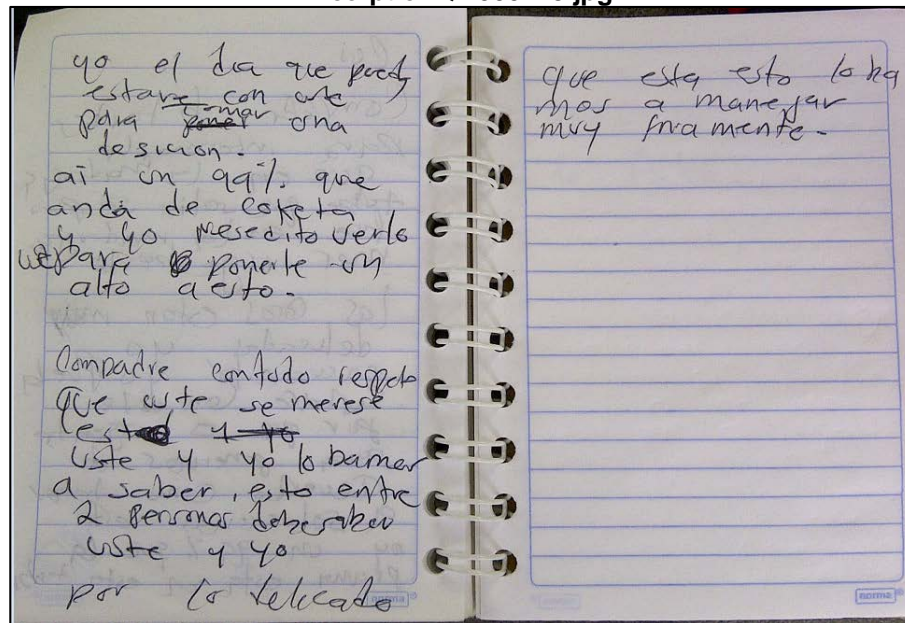 yo el dia que pueda
estare con uste
para tomar una
desicion.
ai un 99%. que
anda de coketa
y yo nesecito verlo
para ponerle un
alto a esto.
Compadre contodo respeto
que uste se merese
uste y yo lo bamos
a saber, esto entre
2 personas debe saber
uste y yo
por lo delicado
norma
que esta esto lo ba
mos a manejar
muy friamente.
norma